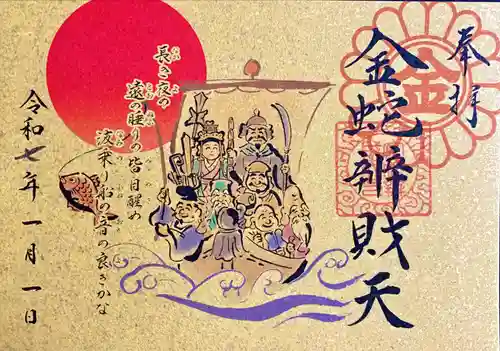 奉拝
金
金蛇辨財天
長き夜の
遠の睡りの
皆目醒め
波乗り船の
音の良きかな
令和七年一月一日